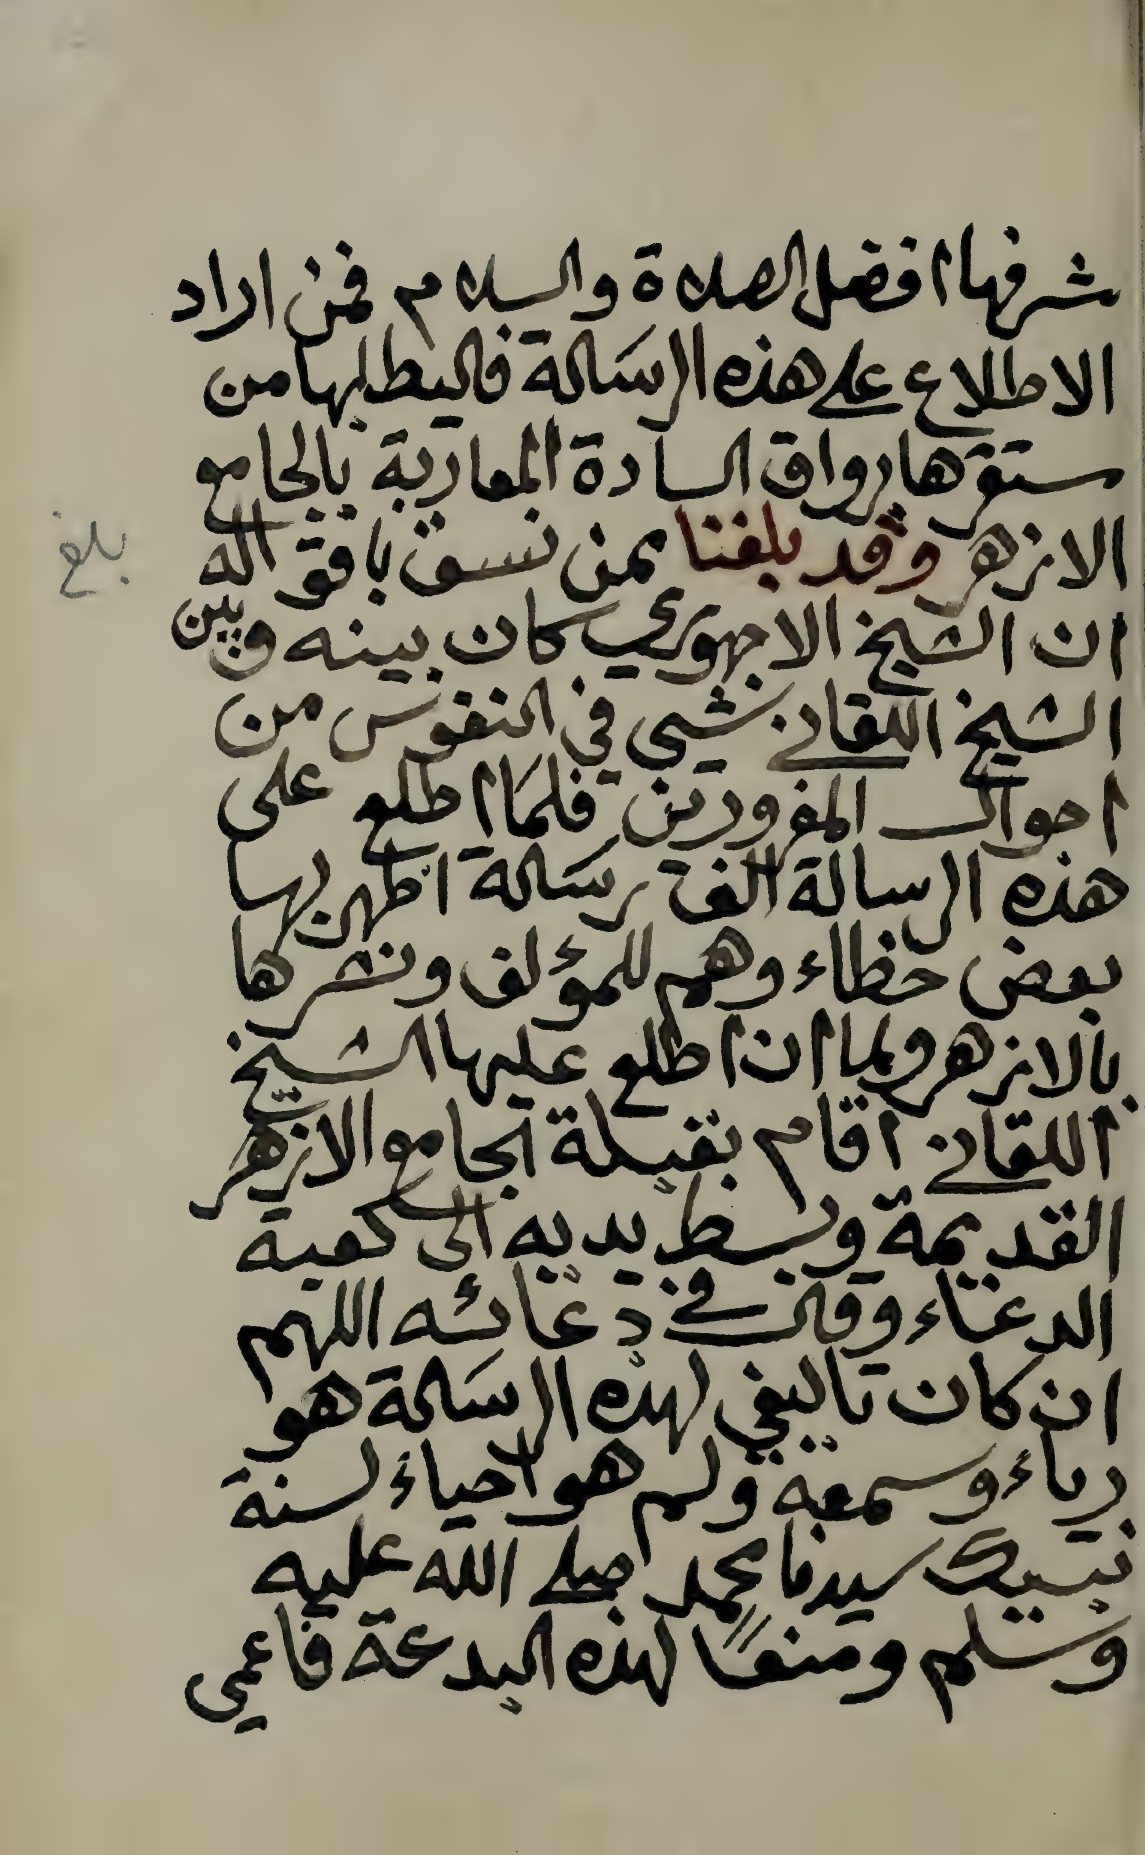 شرفها افضل الصلاة والسلام فمن اراد
الاطلاع على هذه الرسالة فاليطلبها من
ستقرها رواق السادة المغاربة بالجامع
الازهر وقد بلغنا ممن نسق باقواله
ان الشيخ الاجهوري كان بينه وبين
الشيخ اللقاني شيي في النفوس من
احوال المغرورين فلما اطلع على
هذه الرسالة الف رسالة اظهر بها
بعض خطاء وهم للمؤلف ونشرها
بالازهر ولما ان اطلع عليها الشيخ
اللقاني اقام بقبلة الجامع الازهر
القديمة وبسط يديه الى كعبة
الدعاء وقال في دعائه اللهم
ان كان تاليفي لهذه الرسالة هو
رياء وسمعة ولم هو احياء لسنة
نبيك سيدنا محمد صلى الله عليه
وسلم ومنعًا لهذه البدعة فاعمي
بلغ